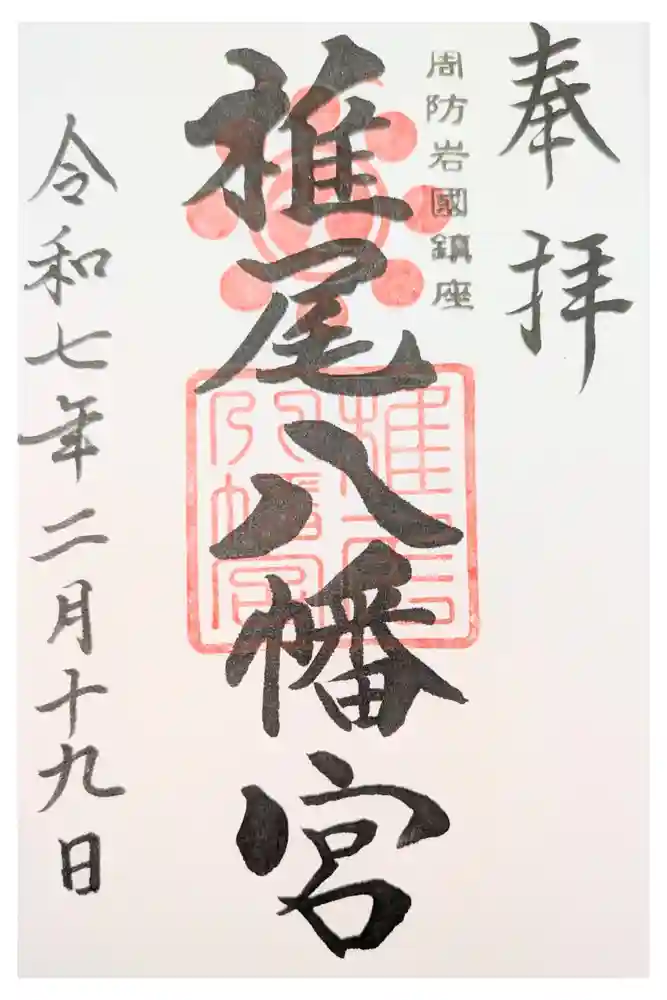 奉拝
周防岩國鎮座
椎尾八幡宮
椎尾
八幡宮
令和七年二月十九日